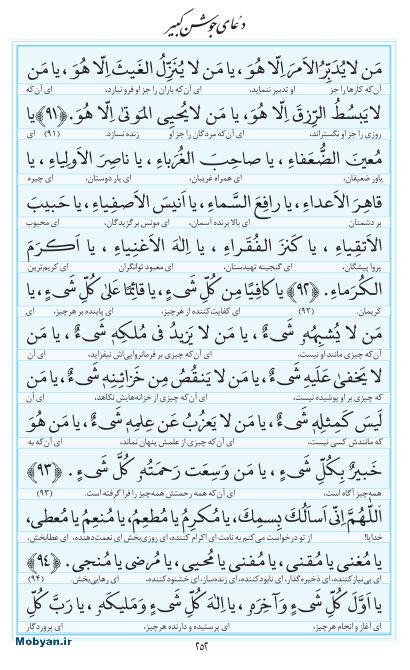 دعای جوشن کبیر
مَن لا یُدَبِّرُ الاَمرَ اِلّا هُوَ، یا مَن لا یُنَزِّلُ الغَیثَ اِلّا هُوَ، یا مَن
آن که کارها را جز او تدبیر ننماید، ای آن که باران را جز او فرو نبارد، ای آن که
لا یَبسُطُ الرِّزقَ اِلّا هُوَ، یا مَن لا یُحیِی المَوتیٰ اِلّا هُوَ. ﴿۹۱﴾ یا
روزی را جز او نگستراند، ای آن که مردگان را جز او زنده نسازد. (۹۱) ای
مُعینَ الضُّعَفاءِ، یا صاحِبَ الغُرَباءِ، یا ناصِرَ الاَولِیاءِ، یا
یاور ضعیفان، ای همراه غریبان، ای یار دوستان، ای چیره
قاهِرَ الاَعداءِ، یا رافِعَ السَّماءِ، یا اَنیسَ الاَصفِیاءِ، یا حَبیبَ
بر دشمنان ای بالا برنده آسمان، ای مونس برگزیدگان، ای محبوب
الاَتقِیاءِ، یا کَنزَ الفُقَراءِ، یا اِلٰهَ الاَغنِیاءِ، یا اَکرَمَ
پروا پیشگان، ای گنجینه تهیدستان، ای معبود توانگران ای کریم‌ترین
الکُرَماءِ. ﴿۹۲﴾ یا کافِیًا مِن کُلِّ شَیءٍ، یا قائِمًا عَلیٰ کُلِّ شَیءٍ، یا
کریمان. (۹۲) ای کفایت کننده از هر چیز، ای پاینده بر هر چیز، ای
مَن لا یُشبِهُهُ شَیءٌ، یا مَن لا یَزیدُ فی مُلکِهِ شَیءٌ، یا مَن
آن که چیزی مانند او نیست، ای آن که چیزی بر فرمانروایی‌اش نیفزاید، ای آن
لا یَخفیٰ عَلَیهِ شَیءٌ، یا مَن لا یَنقُصُ مِن خَزائِنِهِ شَیءٌ، یا مَن
که چیزی بر او پوشیده نیست، ای آن که چیزی از خزانه‌هایش نکاهد، ای آن
لَیسَ کَمِثلِهِ شَیءٌ، یا مَن لا یَعزُبُ عَن عِلمِهِ شَیءٌ، یا مَن هُوَ
که مانندش کسی نیست، ای آن که چیزی از علمش پنهان نماند، ای آن که به
خَبیرٌ بِکُلِّ شَیءٍ، یا مَن وَسِعَت رَحمَتُهُ کُلَّ شَیءٍ. ﴿۹۳﴾
همه چیز آگاه است، ای آن که همه رحمتش همه‌چیز را فرا گرفته است. (۹۳)
اَللّٰهُمَّ اِنّی اَسأَلُکَ بِسمِکَ، یا مُکرِمُ یا مُطعِمُ، یا مُنعِمُ یا مُعطی،
خدایا! از تو درخواست می‌کنم به نامت ای اکرام کننده، ای روزی‌بخش ای نعمت‌دهنده، ای عطابخش،
یا مُغنی یا مُقنی، یا مُفنی یا مُحیی، یا مُرضی یا مُنجی. ﴿۹۴﴾
ای بی‌نیاز کننده، ای ذخیره‌گذار، ای نابود کننده، ای زنده‌ساز، ای خشنود کننده، ای رهایی‌بخش. (۹۴)
یا اَوَّلَ کُلِّ شَیءٍ وَ آخِرَهُ، یا اِلٰهَ کُلِّ شَیءٍ وَ مَلیکَهُ، یا رَبَّ کُلِّ
ای آغاز و انجام هر چیز، ای پرستیده و دارنده هر چیز، ای پروردگار
۲۵۲
Mobyan.ir